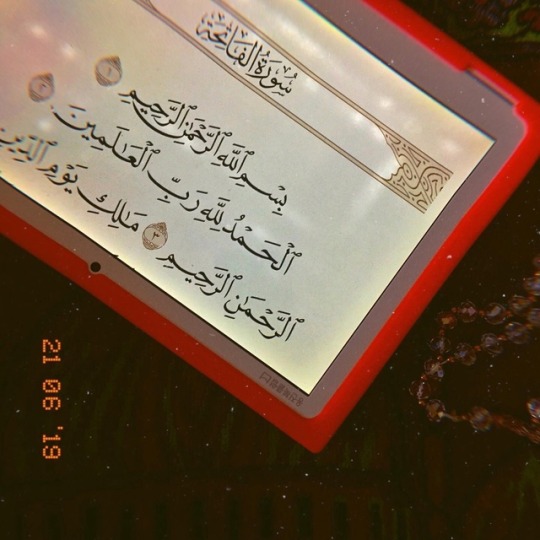 سُورَةُ الفَاتِحَةِ
بِسْمِ ٱللَّهِ ٱلرَّحْمَٰنِ ٱلرَّحِيمِ ١
ٱلْحَمْدُ لِلَّهِ رَبِّ ٱلْعَٰلَمِينَ ٢
ٱلرَّحْمَٰنِ ٱلرَّحِيمِ ٣ مَٰلِكِ يَوْمِ ٱلدِّينِ
21 06 '19